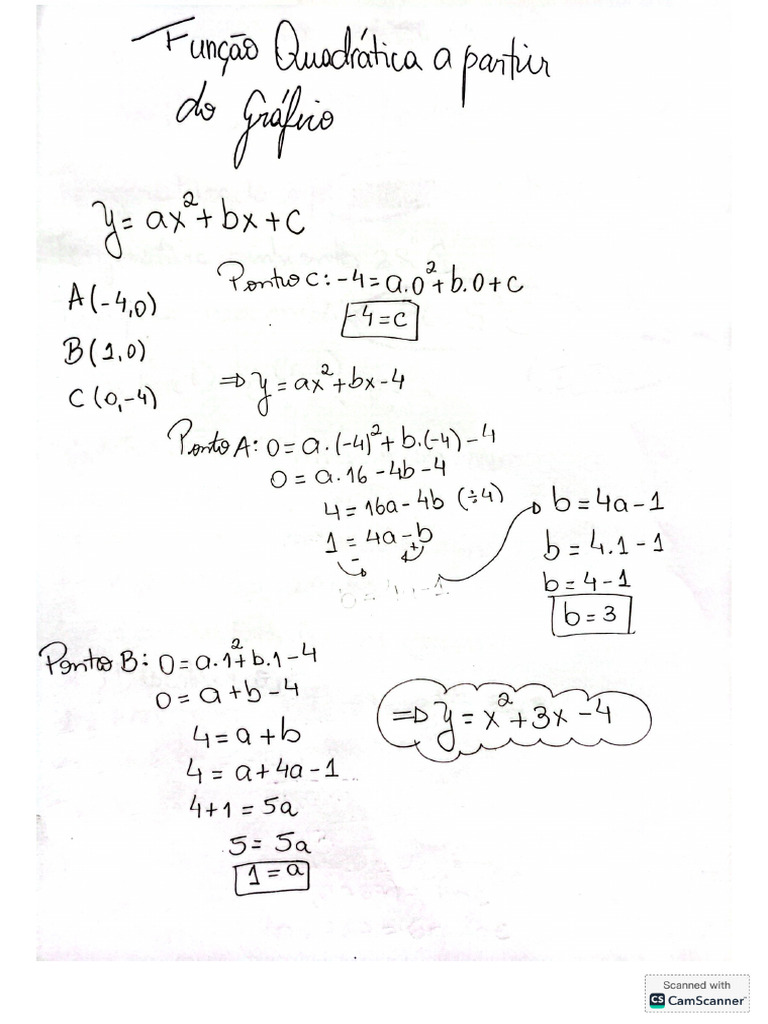 Função Quadrática a partir
do Gráfico
y = ax² + bx + c
A(-4,0)
B(1,0)
C(0,-4)
Ponto C: -4 = a.0² + b.0 + c
-4 = c
⇒ y = ax² + bx - 4
Ponto A: 0 = a.(-4)² + b.(-4) - 4
0 = a.16 - 4b - 4
4 = 16a - 4b (÷4)
1 = 4a - b
- +
b = 4a - 1
b = 4.1 - 1
b = 4 - 1
b = 3
Ponto B: 0 = a.1² + b.1 - 4
0 = a + b - 4
4 = a + b
4 = a + 4a - 1
4 + 1 = 5a
5 = 5a
1 = a
⇒ y = x² + 3x - 4
Scanned with
CS CamScanner